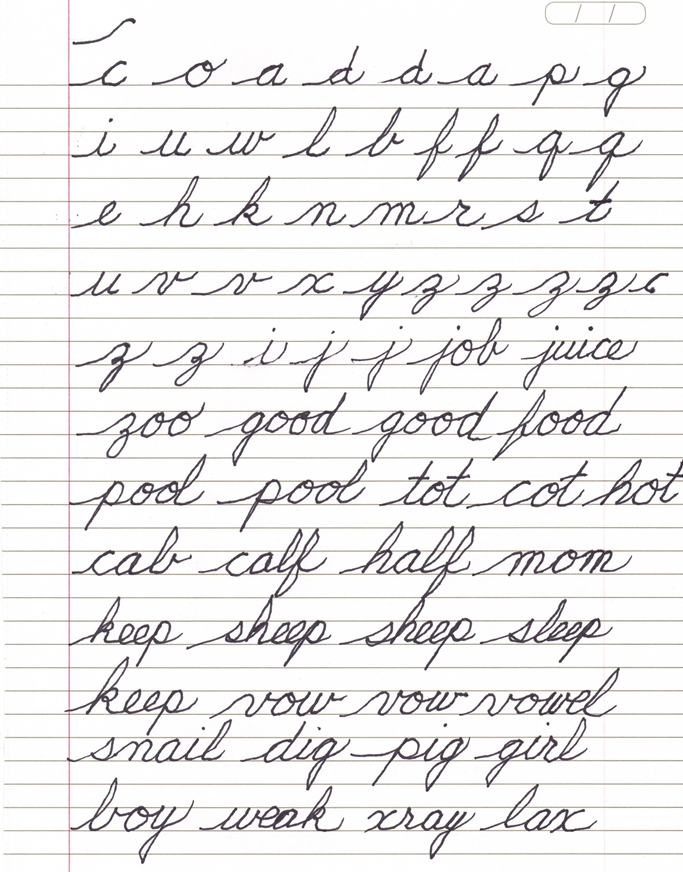 c o a d d a p g
i u w l b f f q q
e h k n m r s t
u v v x y z z z z c
z z i j j job juice
zoo good good food
pool pool tot cot hot
cab calf half mom
keep sheep sheep sleep
keep vow vow vowel
snail dig pig girl
boy weak xray lax